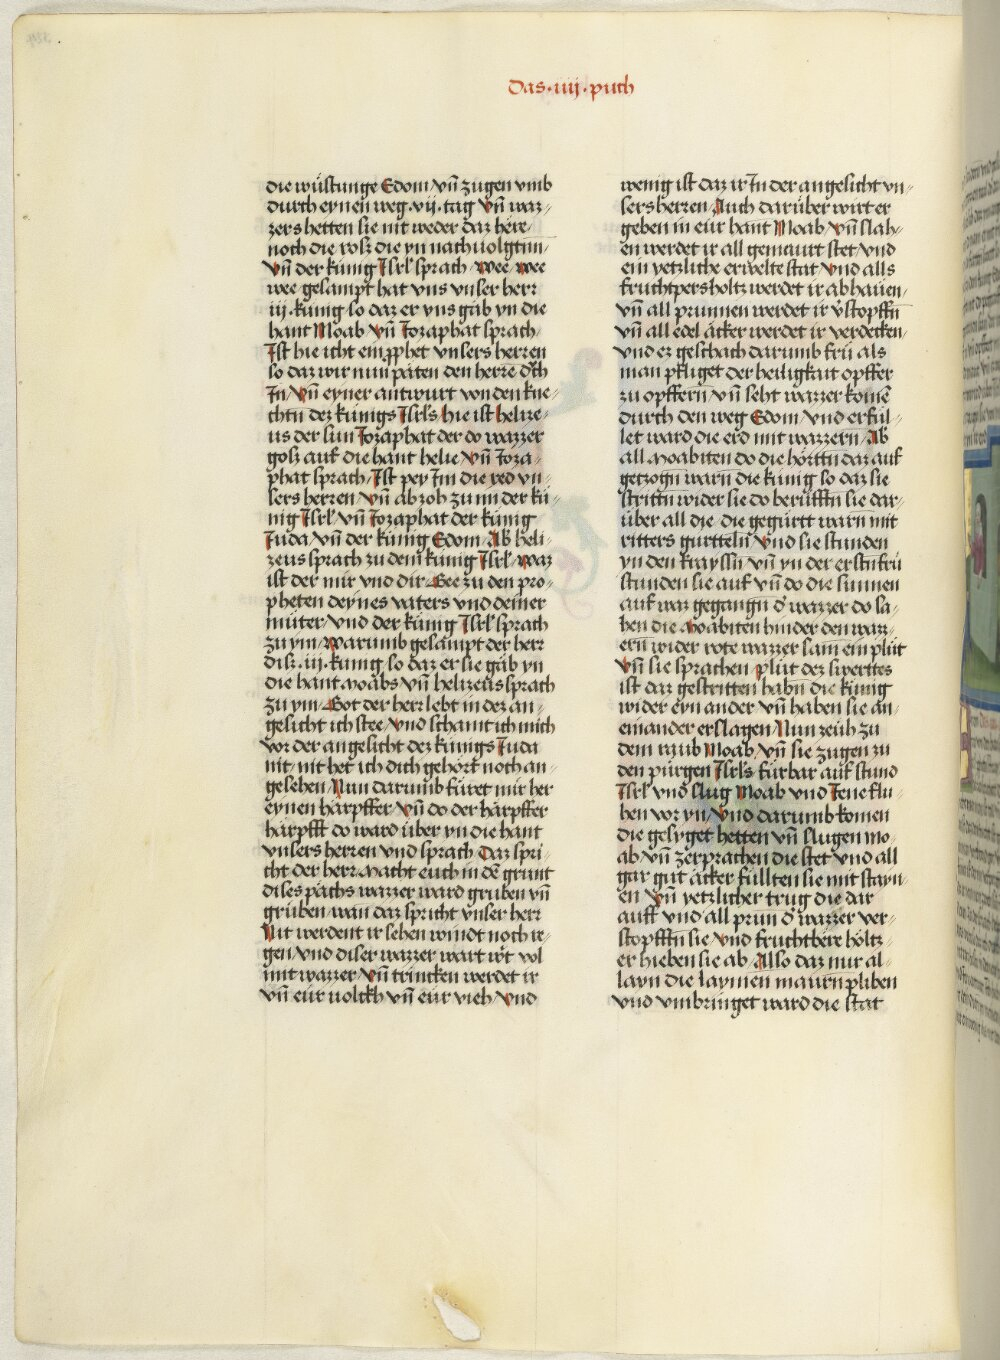 Das · iiij · puch
die wüstunge Edom / vñ zugen vmb
durch eynen weg · vij · tag vñ waz-
zers hetten sie nit weder daz here /
noch die rosz die yn nachuolgtñn /
Vñ der künig Jsrl' sprach / wee wee
wee gesampt hat vns vnser herr
iij · künig so daz er vns gäb yn die
hant Moab Vñ Jozaphat sprach /
Jst hie icht ein pphet vnsers herren
so daz wir nun päten den herre d'ch
Jn / Vñ eyner antwurt von den kne-
chtn dez künigs Jsrl's hie ist helize-
us der sun Jozaphat der do wazzer
gosz auf die hant helie / Vñ Joza-
phat sprach / Jst pey Jm die red vn-
sers herren / Vñ ab zoh zu im der kü-
nig Jsrl' vñ Jozaphat der künig
Juda vñ der künig Edom / Ab heli-
zeus sprach zu dem künig Jsrl' / waz
ist der mir vnd dir / Gee zu den pro-
pheten deynes vaters vnd deiner
müter / vnd der künig Jsrl' sprach
zu ym / warumb gesampt der herr
disz · iii · kunig so daz er sie gäb yn
die hant Moabs vñ helizeus sprach
zu ym / Got der herr lebt in dez an-
gesicht ich stee / vnd schamt ich mich
vor der angesicht dez künigs Juda
nit / nit het ich dich gehört noch an-
gesehen / Nun darumb füret mir her
eynen härpffer vñ do der härpffer
härpfft do ward über yn die hant
vnsers herren vnd sprach Daz spri-
cht der herr Macht euch in dē grunt
dises pachs wazzer ward gruben vñ
grüben wan daz spricht vnser herr
Nit werdent ir sehen windt noch re-
gen / vnd diser wazzer wart w't vol
mit wazzer / Vñ trincken werdet ir
vñ eür uolckh vñ eür vieh / Vnd
wenig ist daz ir Jn der angesicht vn-
sers herren / Auch darüber wirt er
geben in eür hant Moab / Vñ slah-
en werdet ir all gemaurt stet / vnd
ein yetzliche erwelte stat vnd alls
fruchtpers holtz werdet ir abhauen /
vñ all prunnen werdet ir v'stopffñ
vñ all edel äcker werdet ir verdecken /
vnd ez geschach darumb frü als
man pfliget der heiligkait opffer
zu opffern / vñ seht wazzer komē
durch den weg Edom / vnd erfül-
let ward die erd mit wazzern / Ab
all Moabiten do die hörttñ daz auf
getzogñ warñ die künig so daz sie
strittñ wider sie do berüfftñ sie dar-
über all die / die gegürtt warñ mit
ritters gürtteln / vnd sie stunden
yn den kraysñ vñ yn der erstñ frü
stunden sie auf vñ do die sunnen
auf waz gegangñ d' wazzer do sa-
hen die Moabiten hinder den waz-
ern wider rote wazzer sam ein plüt
Vñ sie sprachen plüt dez swerttes
ist daz gestritten habñ die künig
wider eyn ander vñ haben sie an-
einander erslagen / Nun zeüh zu
dem raub Moab / vñ sie zugen zu
den pürgen Jsrl's fürbar auf stund
Jsrl' vnd slug Moab vnd Jene flu-
hen vor yn / vnd darumb komen
die gesyget hetten vñ slugen mo-
ab / vñ zerprachen die stet vnd all
gar gut äcker füllten sie mit stayn-
en Vñ yetzlicher trug die dar
auff vnd all prun d' wazzer ver-
stopfftñ sie vnd fruchtbere höltz-
er hieben sie ab Also daz nur al-
layn die laymen maurn pliben
vnd vmbringet ward die stat